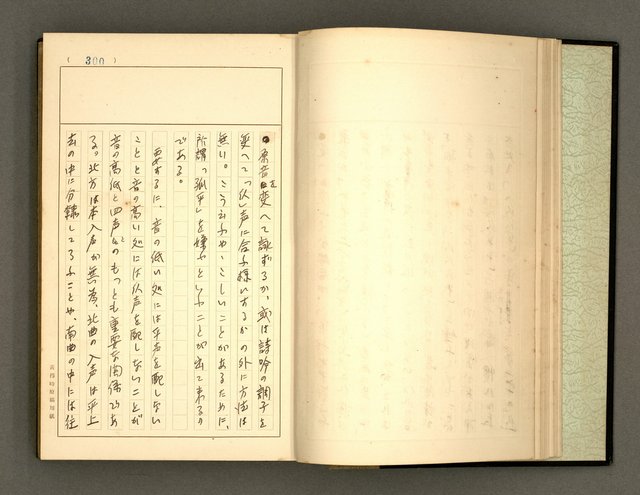 (300)
原音を変へて詠ずるか、或は詩吟の調子を
変へて「仄」声に合ふ様にするかの外に方法は
無い。こうしたやゝこしいことがあるために、
所謂「孤平」を嫌ふといふことが出て来るの
である。
要するに、音の低い処には平声を配しない
ことと音の高い処には仄声を配しないことが
音の高低と四声とのもつとも重要な関係であ
る。北方は本入声が無い為、北曲の入声は平上
去の中に分隷してゐることや、南曲の中には往